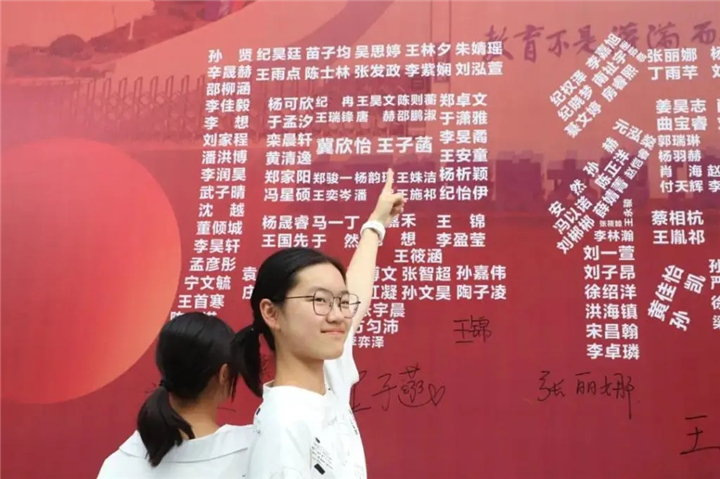 教育不是灌满
孙 贤 纪昊廷 苗子均 吴思婷 王林夕 朱婧瑶
辛晟赫 王雨点 陈士林 张发政 李紫娴 刘泓萱
邵柳涵
李佳毅 杨可欣 纪 冉 王昊文 陈则蓁 郑卓文
李 想 于孟汐 王瑞锋 唐 赫 邵鹏淑 于潇雅
刘家程 栾晨轩 李旻薇
冀欣怡 王子菡
潘洪博 黄清逸 王安童
李润昊 郑家阳 郑骏一 杨韵 王姝洁 杨析颖
武子晴 冯星硕 王奕岑 潘 王施祁 纪怡伊
沈 越
董倾城 杨晟睿 马一丁 禾 王 锦
李昊轩 王国先 于 然 想 李盈莹
孟彦彤 王筱涵
宁文毓 袁 文 张智超 孙嘉伟
王首寒 庄 江凝 孙文昊 陶子凌
宇晨
匀沛
李弈泽
李嘉旭
纪权泽 南祉宇
纪晓梦 房睿熙
綦文婷
张丽娜 杨
丁雨芊
姜昊志
曲宝睿
郭瑞琳
杨羽赫
肖 海 赵
付天辉
元泓
孙 赫
陈正洋
安 然 薛靖菁
冯以诺
刘郴郴
李林瀚
刘一萱
刘子昂
徐绍洋
洪海镇
宋昌翰
李卓璘
蔡相杭
王胤祁
黄佳怡
孙 凯
王锦
王子菡
张丽娜
王